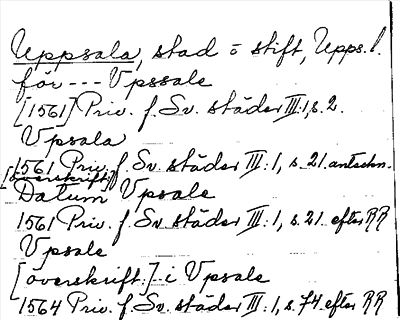 Uppsala, stad o stift, Upps. l.
för --- Vpssale
[1561] Priv. f. Sv. städer III:1, s. 2.
Vpsala
1561 Priv. f. Sv. städer III:1, s. 21. antechn.
[överskrift]
Datum Vpsale
1561 Priv. f. Sv. städer III:1, s. 21 efter RR
Vpsale
[överskrift:] i Vpsale
1564 Priv. f. Sv. städer III:1, s. 74 efter RR